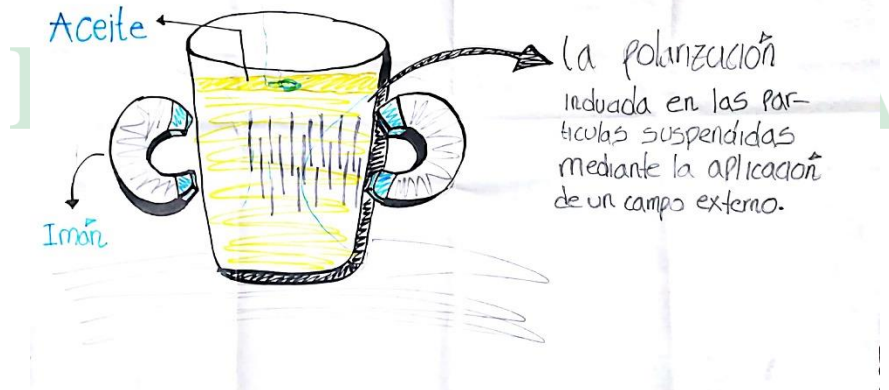 Aceite
la polarización
inducada en las par-
tículas suspendidas
mediante la aplicación
de un campo externo.
Imán